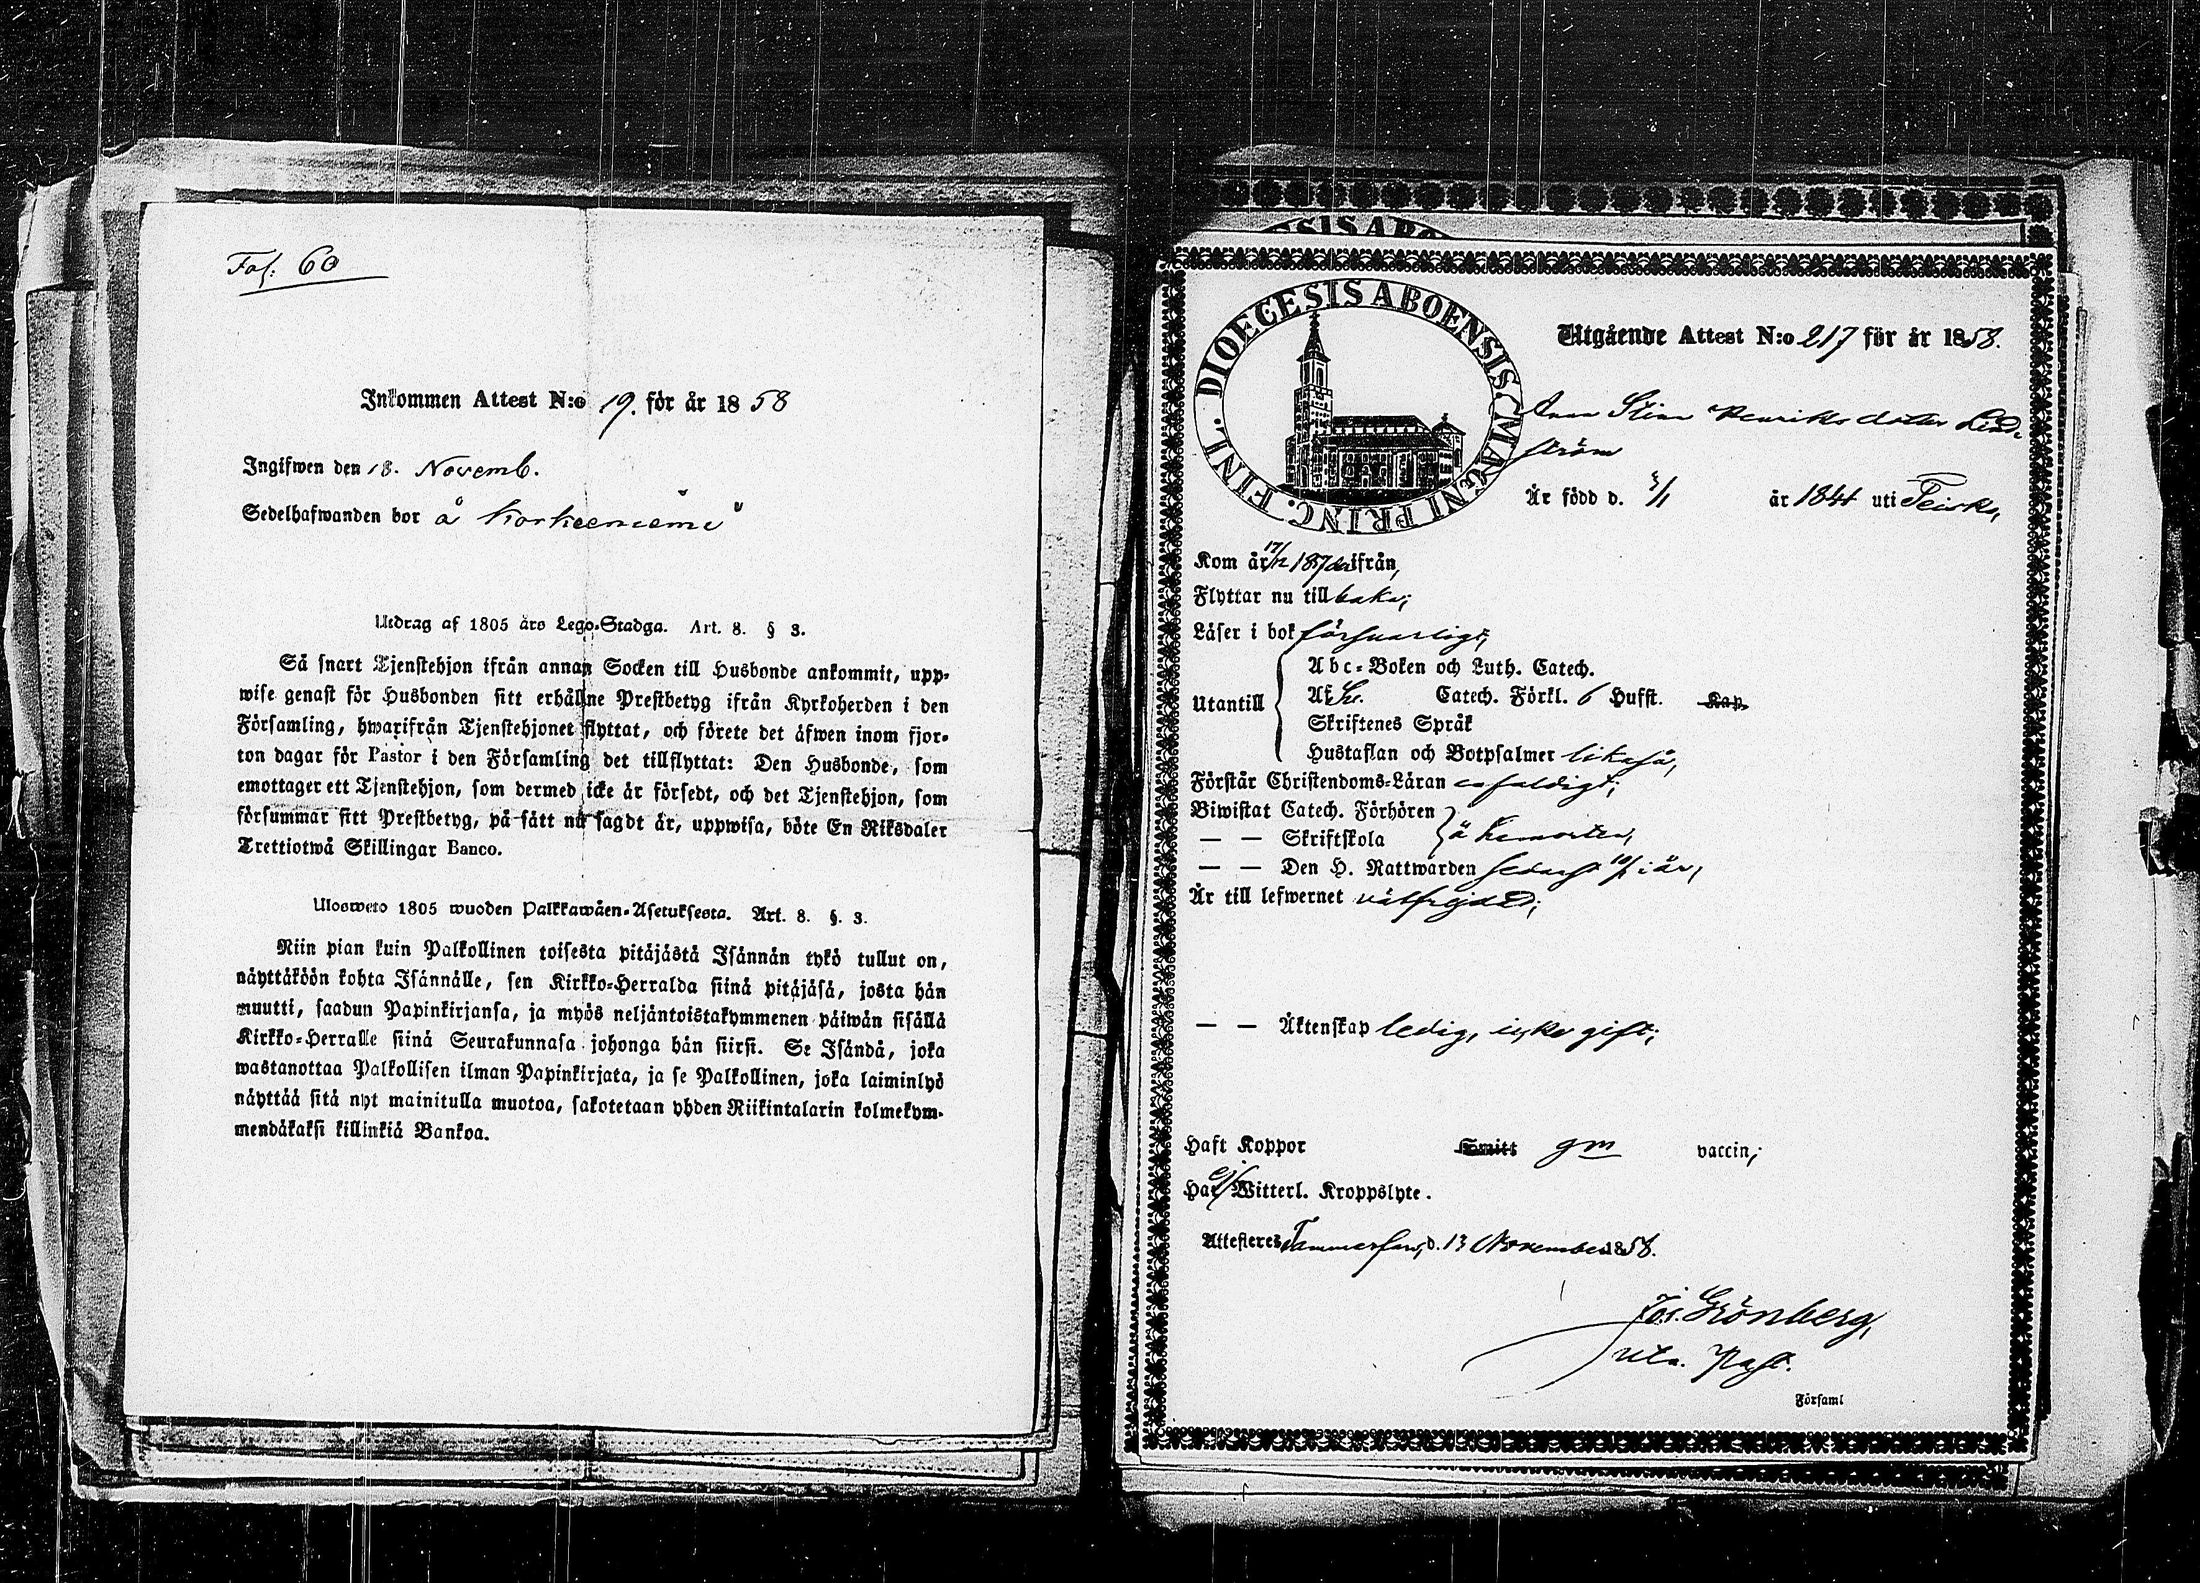 Fol: 60
Inkommen Attest N:o 19. för år 1858
Ingifwen den 18. Novemb.
Sedelhafwanden bor å Korkeeniemi
Utdrag af 1805 års Lego-Stadga. Art. 8. § 3.
Så snart Tjenstehjon ifrån annan Socken till Husbonde ankommit, upp-
wise genast för Husbonden sitt erhållne Prestbetyg ifrån Kyrkoherden i den
Församling, hwarifrån Tjenstehjonet flyttat, och förete det äfwen inom fjor-
ton dagar för Pastor i den Församling det tillflyttat: Den Husbonde, som
emottager ett Tjenstehjon, som dermed icke är försedt, och det Tjenstehjon, som
försummar sitt Prestbetyg, på sätt nu sagdt är, uppwisa, böte En Riksdaler
Trettiotwå Skillingar Banco.
Ulosweto 1805 wuoden Palkkawäen-Asetuksesta. Art. 8. §. 3.
Niin pian kuin Palkollinen toisesta pitäjästä Isännän tykö tullut on,
näyttäköön kohta Isännälle, sen Kirkko-Herralda siinä pitäjäsä, josta hän
muutti, saadun Papinkirjansa, ja myös neljäntoistakymmenen päiwän sisällä
Kirkko-Herralle siinä Seurakunnasa johonga hän siirsi. Se Isändä, joka
wastanottaa Palkollisen ilman Papinkirjata, ja se Palkollinen, joka laiminlyö
näyttää sitä nyt mainitulla muotoa, sakotetaan yhden Riikintalarin kolmekym-
mendäkaksi killinkiä Bankoa.
DIOECESIS ABOENSIS MAGNI PRINC. FINL.
Utgående Attest N:o 217 för år 1858.
Anna Stina Henriksdotter Lind-
ström
Är född d. 3/1 år 1844 uti Teisko,
Kom år 17/12 1857 därifrån,
Flyttar nu tillbaka;
Läser i bok försvarligt,
Utantill
Abc-Boken och Luth. Catech.
Af Catech. Förkl. 6 Hufst. Kap.
Skriftenes Språk
Hustaflan och Botpsalmer likaså,
Förstår Christendoms-Läran enfaldigt;
Biwistat Catech. Förhören
— — Skriftskola å hemorten,
— — Den H. Nattwarden senast 10/1 i år,
Är till lefwernet välfrejdad;
— — Äktenskap ledig, icke gift;
Haft Koppor Smitt gm vaccin;
Har ej Witterl. Kroppslyte.
Attesteres Tammerfors, d. 13 November 1858.
Jos. Grönberg,
Past.
Församl